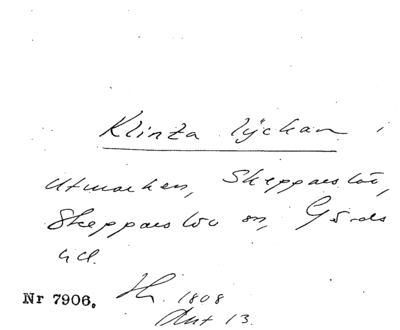 Klinta lyckan,
Utmarken, Skepparslöv,
Skepparslöv sn, Gärds
hd.
Nr 7906. Hh. 1808
Akt 13.